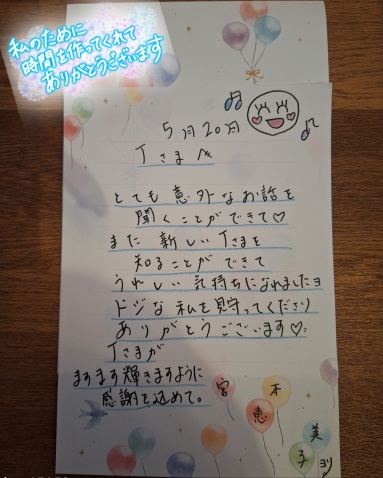 私のために
時間を作ってくれて
ありがとうございます
5月20日
Tさまへ
とても意外なお話を
聞くことができて♡
また新しいTさまを
知ることができて
うれしい気持ちになれましたヨ
ドジな私を貯ってくださり
ありがとうございます♡
Tさまが
ますます輝きますように
感謝を込めて。
宮本
恵美
子ヨリ